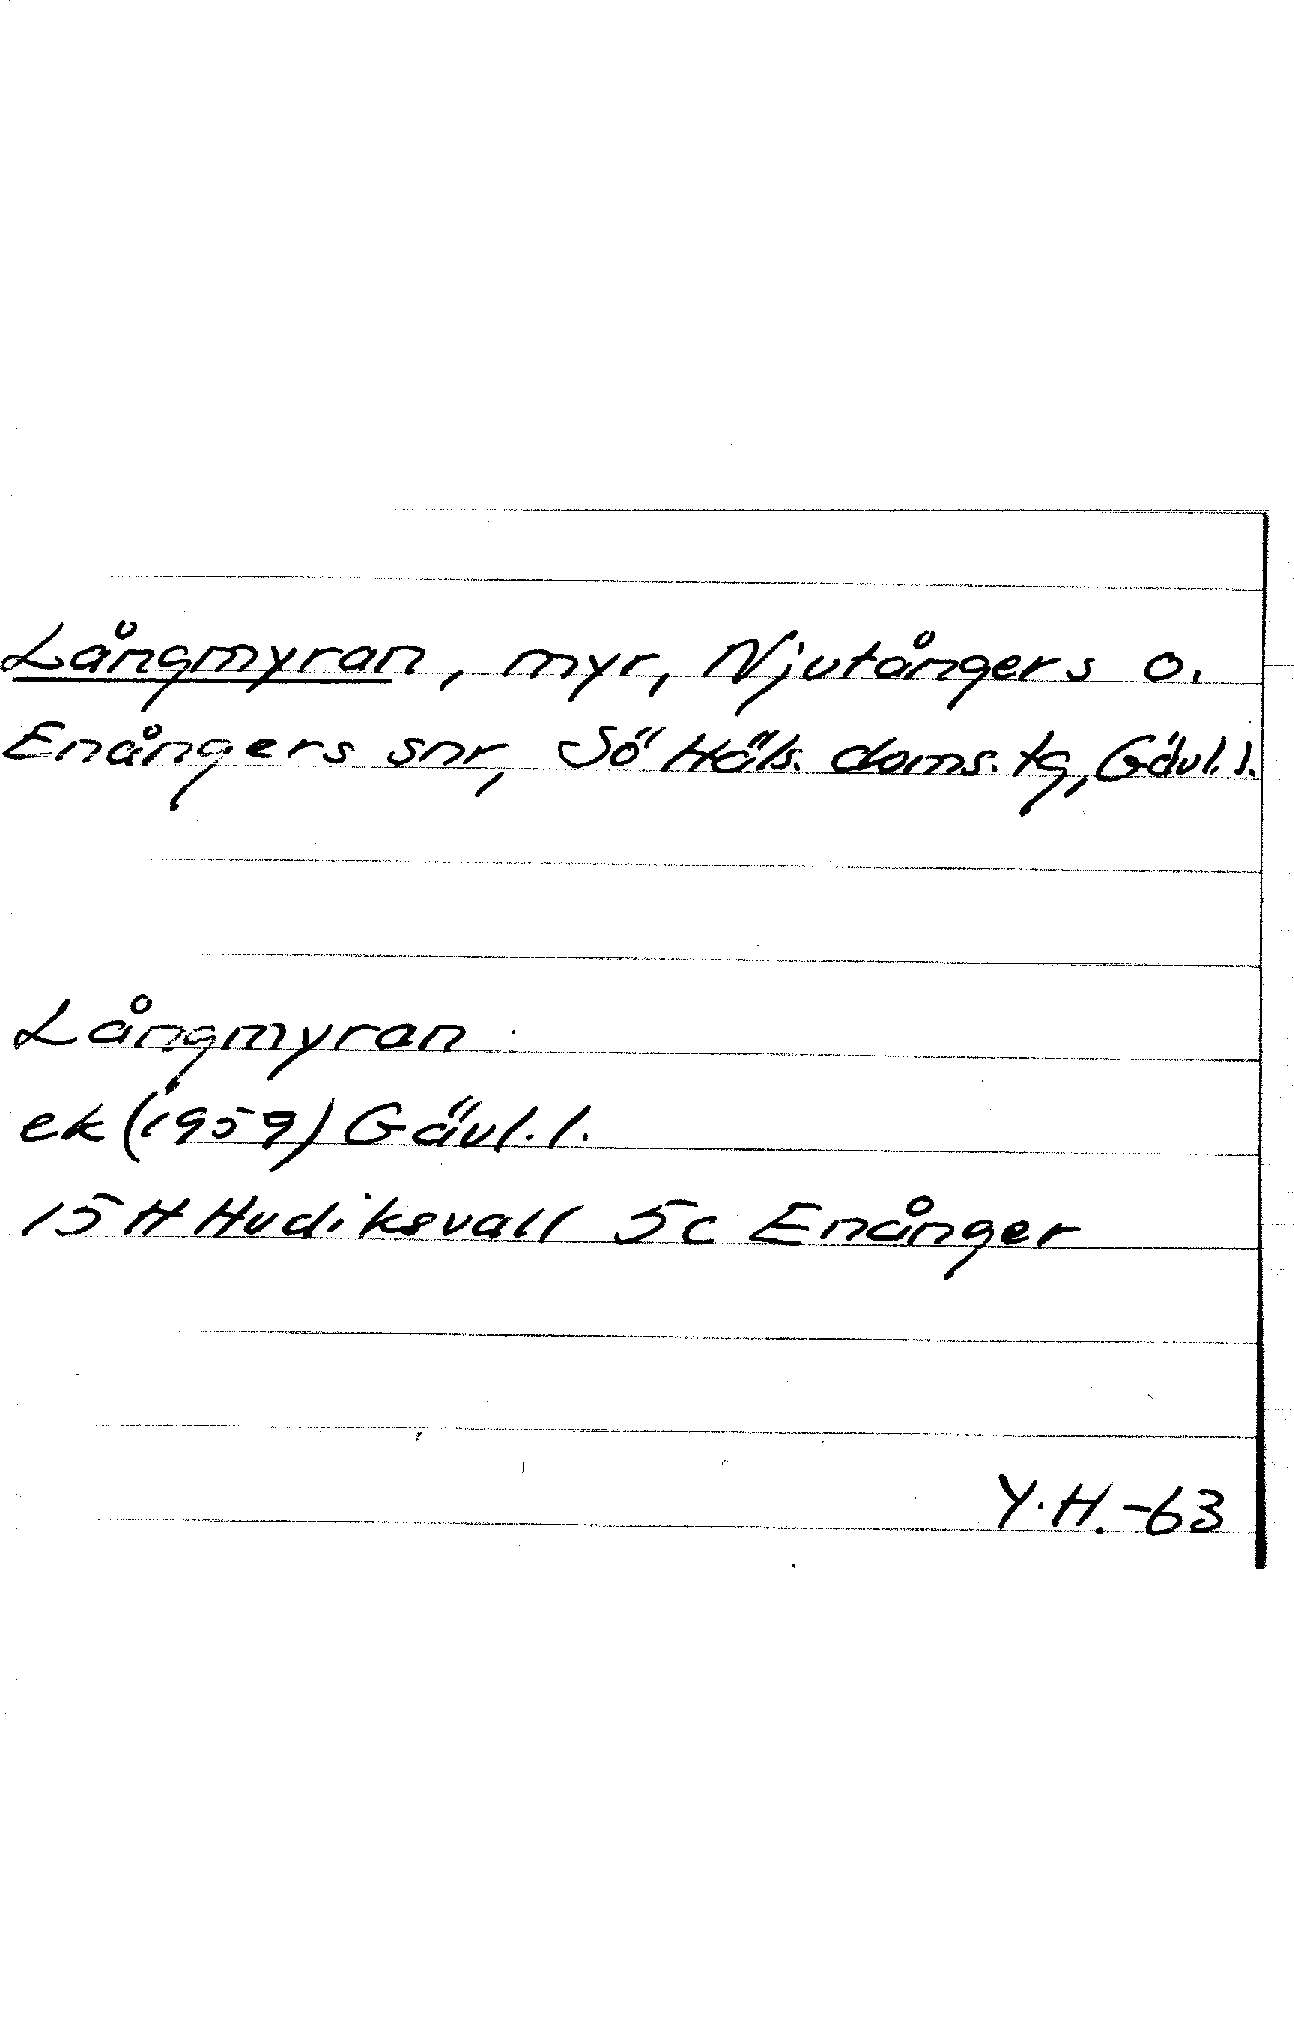 Långmyran, myr, Njutångers o.
Enångers snr, Sö Häls. doms. tg, Gävl. l.
Långmyran
ek (1959) Gävl. l.
15 H Hudiksvall 5c Enånger
Y. H. -63